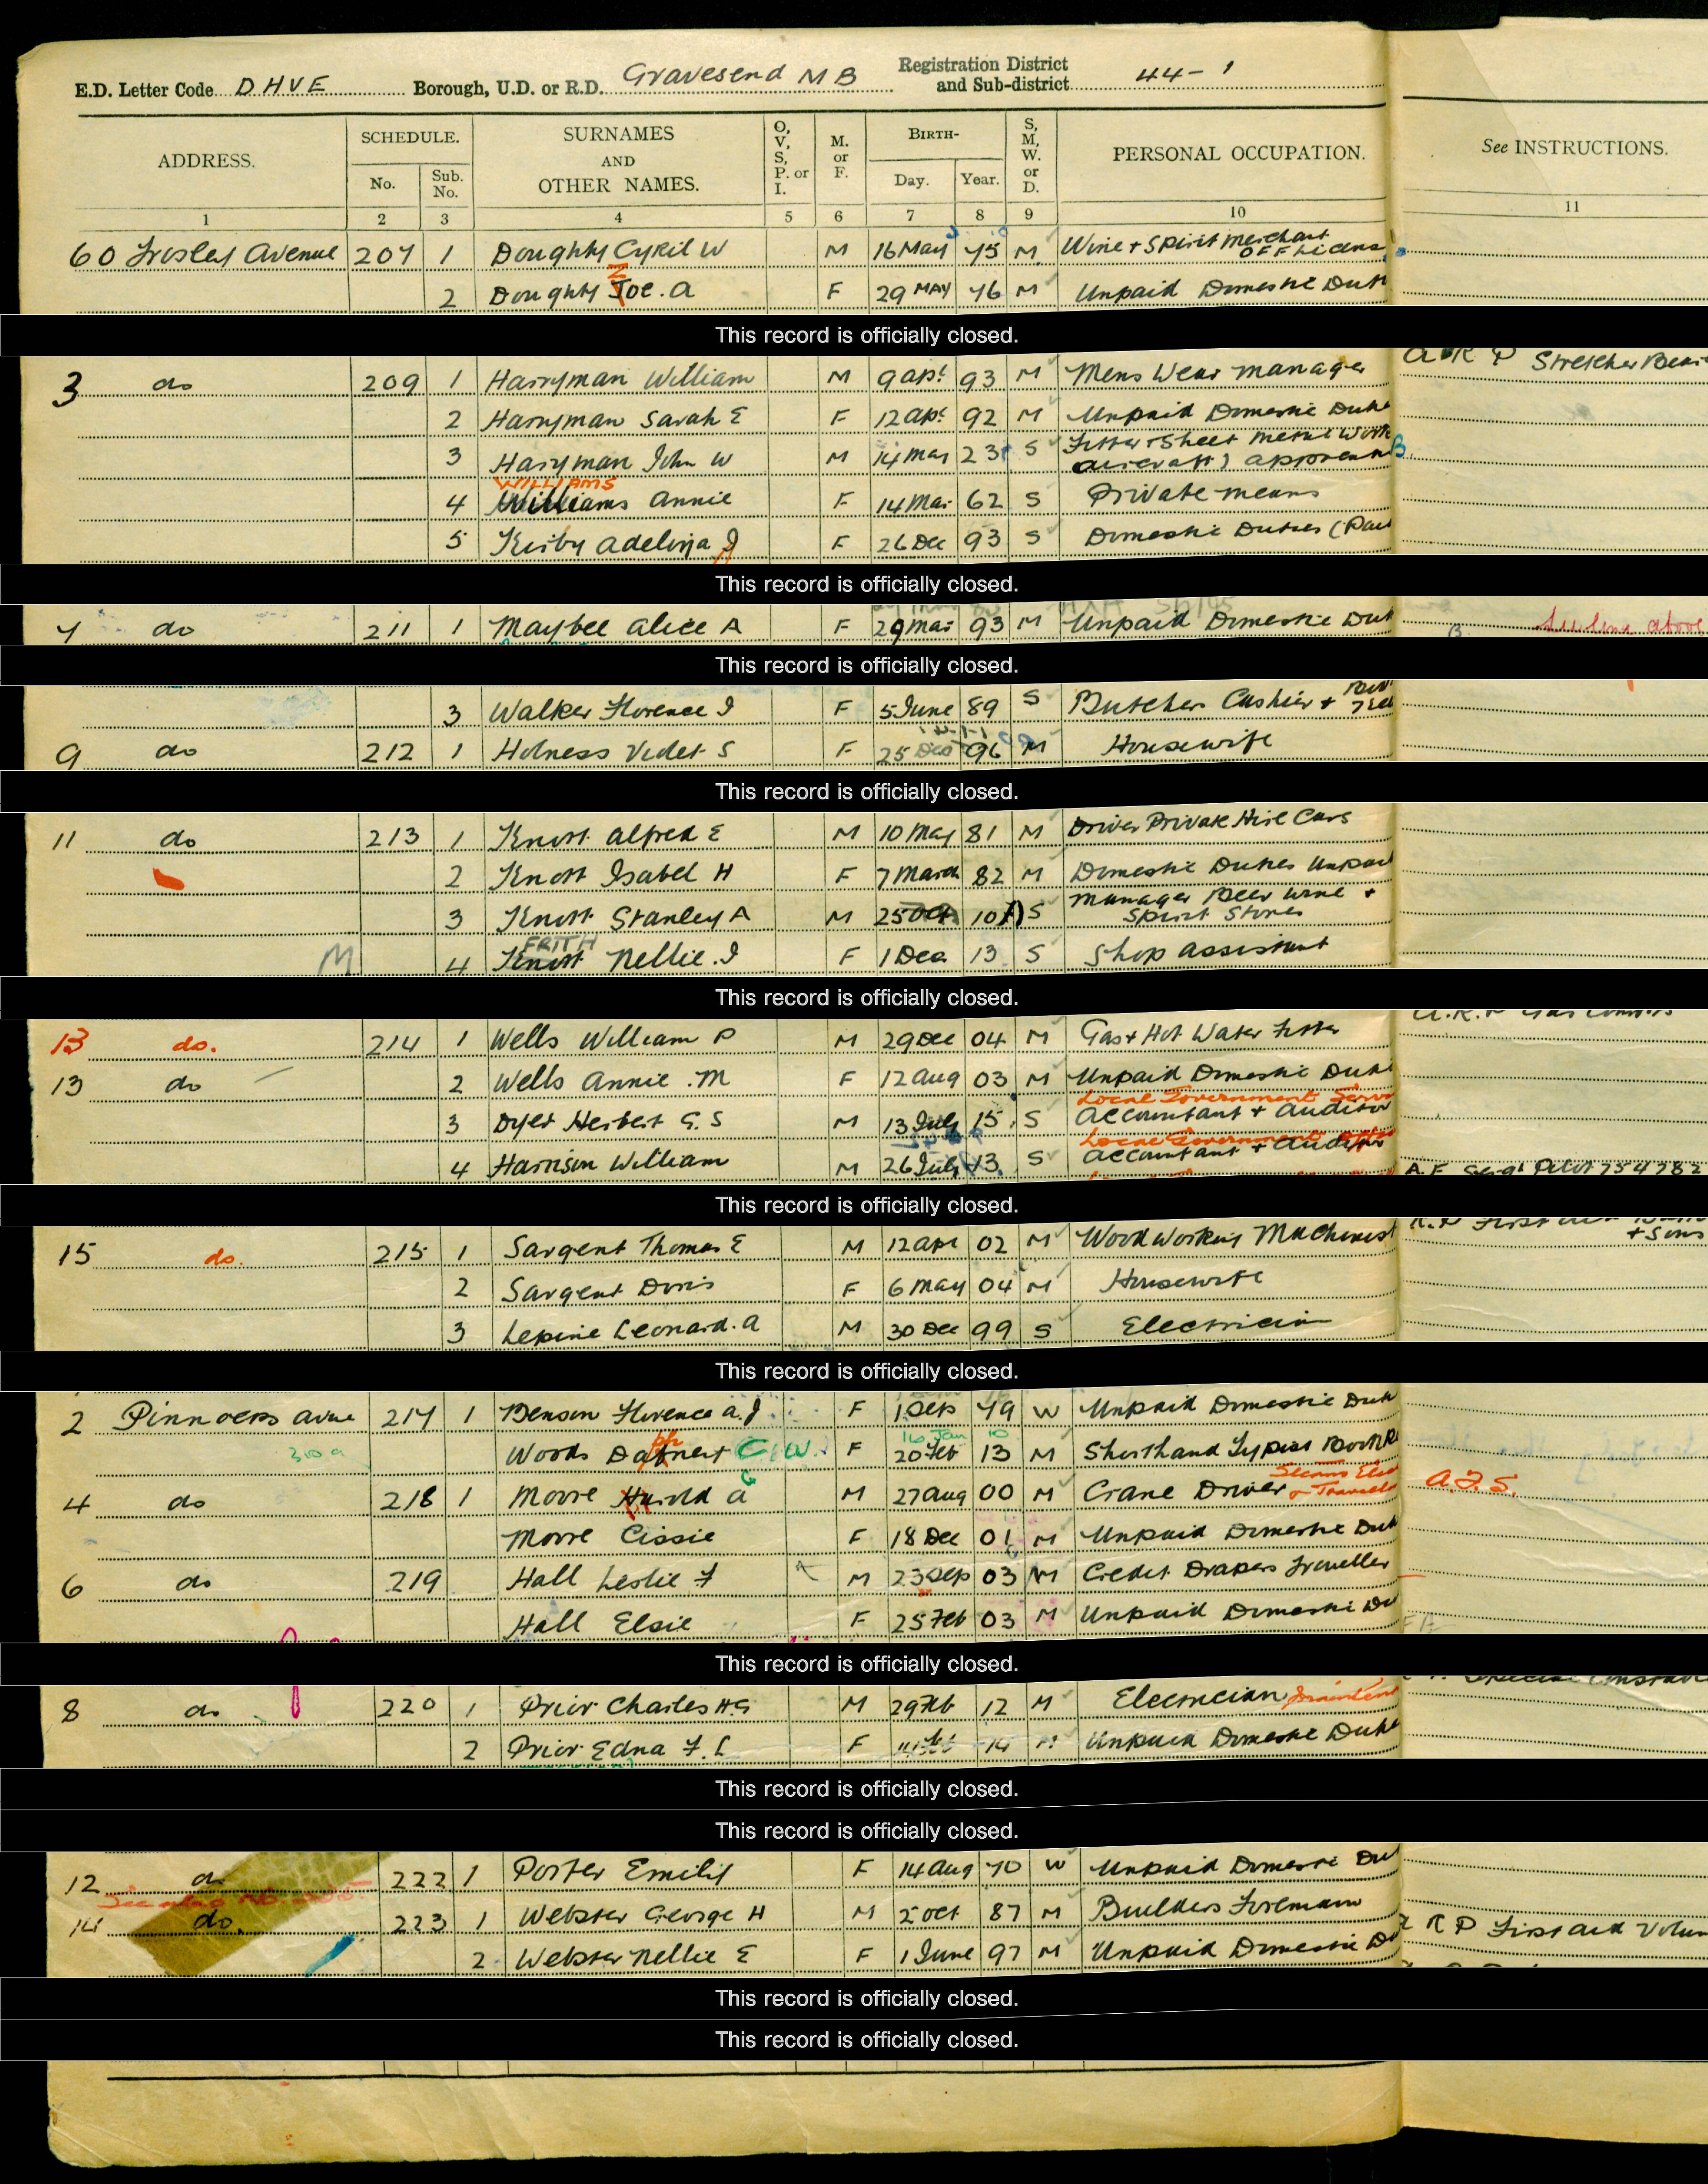 E.D. Letter Code DHVE Borough, U.D. or R.D. Gravesend M B Registration District and Sub-district 44-1
ADDRESS. SCHEDULE. No. Sub. No. SURNAMES AND OTHER NAMES. O, V, S, P. or I. M. or F. BIRTH- Day. Year. S, M, W. or D. PERSONAL OCCUPATION. See INSTRUCTIONS.
1 2 3 4 5 6 7 8 9 10 11
60 Avenue 207 1 Doughty Cyril W M 16 May 75 M Wine + Spirit Merchant OFF Licens
2 Doughty Zoe. A F 29 MAY 76 M Unpaid Domestic Duti
This record is officially closed.
3 do 209 1 Harryman William M 9 Apl 93 M Mens Wear Manager A R P Stretcher Bear
2 Harryman Sarah E F 12 Apl 92 M Unpaid Domestic Duti
3 Harryman John W M 14 Mar 23 S Fitter + Sheet Metal Work
WILLIAMS
4 Williams Annie F 14 Mar 62 S Private means
5 Kirby Adelina J F 26 Dec 93 S Domestic Duties (Paid
This record is officially closed.
7 do 211 1 Maybee Alice A F 29 Mar 93 M Unpaid Domestic Dut
This record is officially closed.
3 Walker Florence I F 5 June 89 S Butchers Cashier +
9 do 212 1 Holness Violet S F 25 Dec 96 M Housewife
This record is officially closed.
11 do 213 1 Knott Alfred E M 10 May 81 M Driver Private Hire Cars
2 Knott Isabel H F 7 March 82 M Domestic Duties Unpaid
3 Knott Stanley A M 25 Oct 10 S Manager Beer Wine + Spirit Stores
FRITH
M 4 Knott Nellie. I F 1 Dec 13 S Shop Assistant
This record is officially closed.
13 do. 214 1 Wells William P M 29 Dec 04 M Gas + Hot Water Fitter
13 do 2 Wells Annie. M F 12 Aug 03 M Unpaid Domestic Duti
Local Government Servi
3 Dyer Herbert G. S M 13 July 15 S Accountant + Auditor
Local Government
4 Harrison William M 26 July 13 S Accountant + Auditor Pilot 754782
This record is officially closed.
15 do. 215 1 Sargent Thomas E M 12 Apr 02 M Wood Working Machinist
2 Sargent Doris F 6 May 04 M Housewife
3 Lepine Leonard. A M 30 Dec 99 S Electrician
This record is officially closed.
2 Pinnocks Avnue 217 1 Benson Florence A. J F 1 Sep 79 W Unpaid Domestic Duti
16 Jan 10
Woods F 20 Feb 13 M Shorthand Typist
4 do 218 1 Moore Harold A M 27 Aug 00 M Crane Driver A.F.S.
Moore Cissie F 18 Dec 01 M Unpaid Domestic Duti
6 do 219 Hall Leslie F M 23 Sep 03 M Credit Drapers Traveller
Hall Elsie F 25 Feb 03 M Unpaid Domestic Du
This record is officially closed.
8 do 220 1 Prior Charles H.G M 29 Feb 12 M Electrician
2 Prior Edna F. L F 14 Unpaid Domestic Dutie
This record is officially closed.
This record is officially closed.
12 do 222 1 Porter Emily F 14 Aug 70 W Unpaid Domestic Dut
See also No.
14 do. 223 1 Webster George H M 2 Oct 87 M Builders Foreman A R P First Aid Volun
2 Webster Nellie E F 1 June 97 M Unpaid Domestic Du
This record is officially closed.
This record is officially closed.